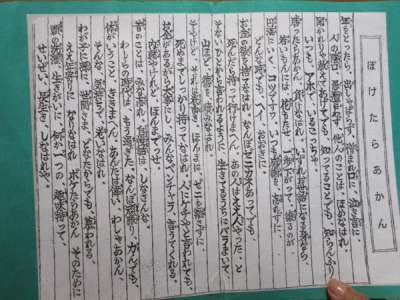 ぼけたらあかん
年をとったら、出しゃばらず、憎まれ口に、泣き言に、
人の陰口、愚痴を言わず、他人のことは、ほめなはれ。
聞かれりゃ教えてあげても、知ってることでも、知らんふり
いつも、アホで、いるこっちゃ。
勝ったらあかん、負けなはれ いずれは世話になる身なら、
若いもんには花もたせ、一歩下がって、譲るのが
円満にいく、コツですワ。いつも感謝を、忘れずに、
どんな時でも、ヘイ、おおきに。
お金の欲を、捨てなはれ、なんぼゼニカネあってでも、
死んだら持って行けまへん あの人はええ人やった、と
そないひとから言われるように、生きてるうちにバラまいて、
山ほど、徳を積みなはれ
そやけど、それは表向き ほんまは、ゼニを離さずに、
死ぬまでしっかり持ってなはれ 人にケチやと言われても、
お金があるから大事にし、みんな、ベンチャラ言うてくれる。
内緒やけれど、ほんまだっせ。
昔のことは、みな忘れ、自慢話は、しなさんな、
わしらの時代は、もう過ぎた なんぼ頑張り、力んでも、
体がいうこと、ききまへん、あんたは偉い、わしゃあかん、
そんな、気持ちで、おりなはれ
わが子に、孫に、世間さま、どなたからでも、慕われる、
ええ年寄りに、なりなはれ ボケたらあかん そのために
頭の洗濯、生きがいに、何か一つの、趣味持って、
せいぜい、長生き、しなはれや。